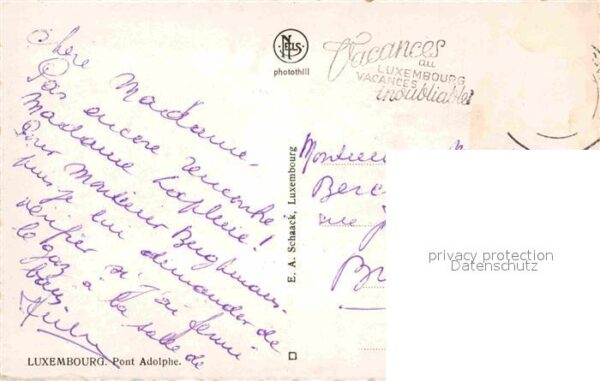 Chère Madame.
Pas encore rencontré
Madame
Pour Monsieur Berghmans.
puis-je lui demander de
vérifier si j'ai fermé
le gaz à la salle de
bain
NELS
photothill
Vacances
au
LUXEMBOURG
VACANCES
inoubliables
E. A. Schaack, Luxembourg
Monsieur
Berc
rue
Br
privacy protection
Datenschutz
LUXEMBOURG. Pont Adolphe.